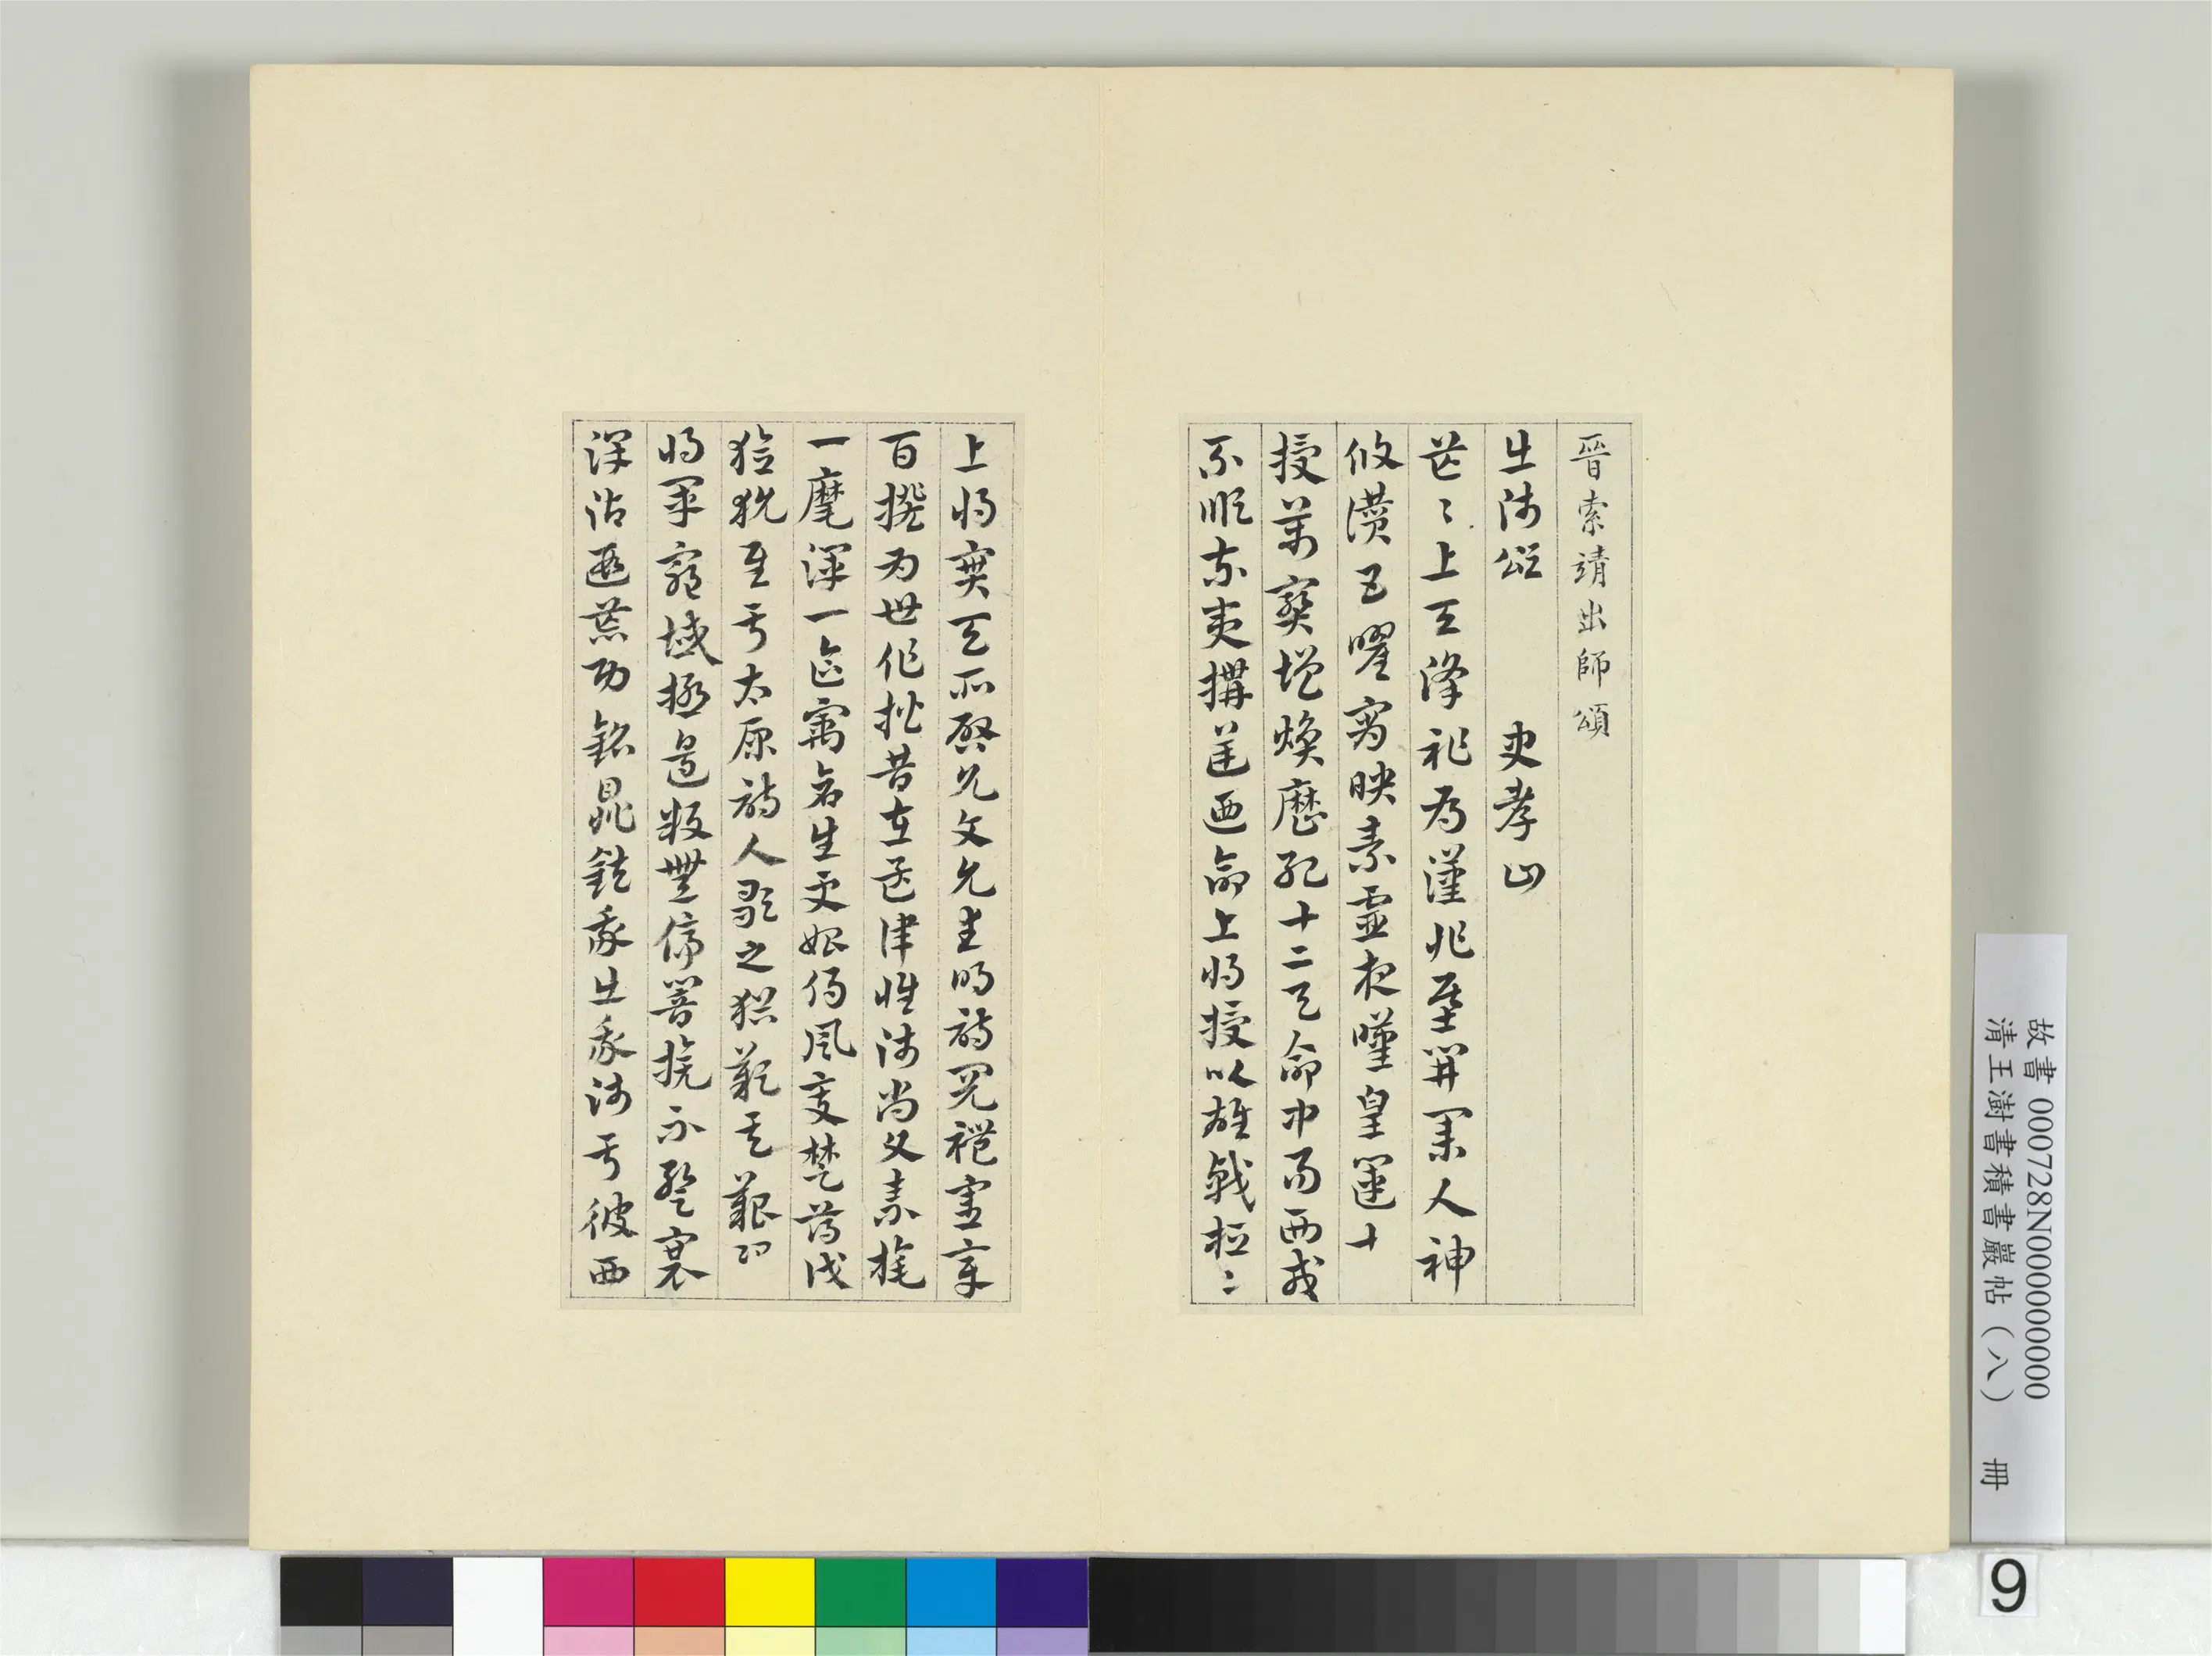 晉索靖出師頌
出師頌　史孝山
茫〻上天降祚為漢兆基開業人神
攸讚五曜宵映素靈夜歎皇運
授萬寶增煥歷紀十二天命中易西戎
不順東夷構逆迺命上將授以雄戟桓〻
上將寔天所啟允文允武明詩閱禮憲章
百揆為世作楷昔在孟津惟師尚父素旄
一麾渾一區寓蒼生更始朔風變楚薄伐
獫狁至于太原詩人歌之猶歎其艱況
將軍窮域極邊鼓無停響旗不蹔褰
澤沾遐荒功銘鼎鉉我出我師于彼西
故書 000728N000000000
清王澍書積書巖帖（八）　冊
9